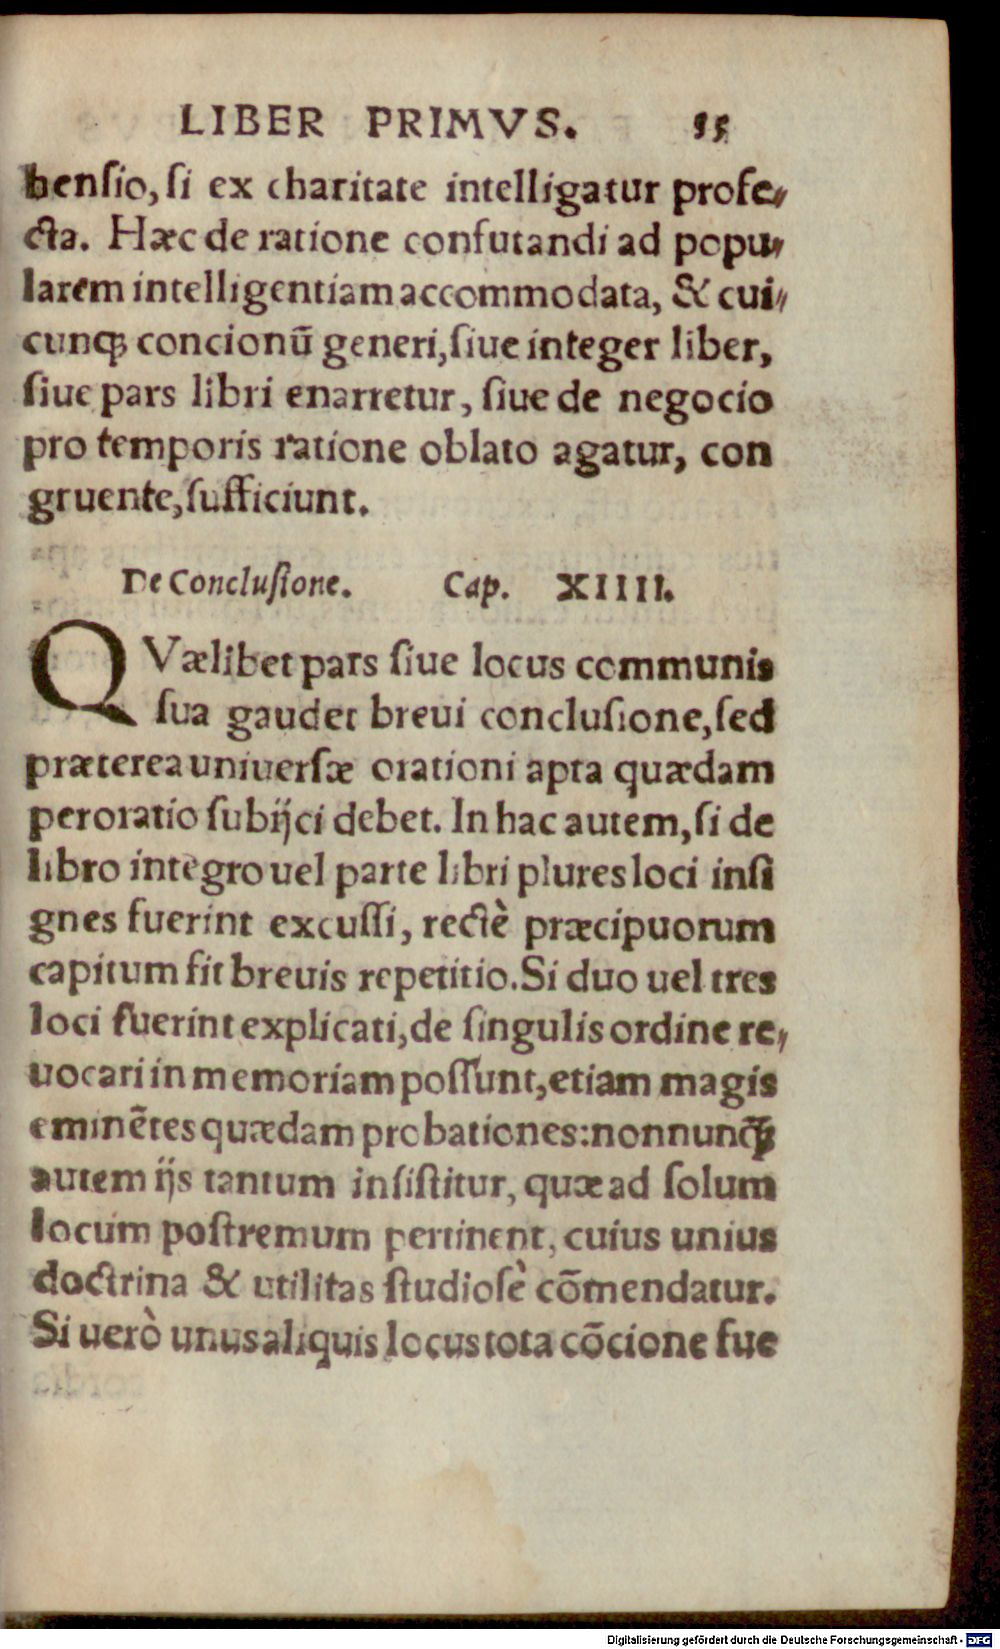 LIBER PRIMVS. 55
hensio, si ex charitate intelligatur profe⸗
cta. Hæc de ratione confutandi ad popu⸗
larem intelligentiam accommodata, & cui⸗
cunqꝫ concionū generi, siue integer liber,
siue pars libri enarretur, siue de negocio
pro temporis ratione oblato agatur, con
gruente, sufficiunt.
De Conclusione. Cap. XIIII.
QVælibet pars siue locus communis
sua gaudet breui conclusione, sed
præterea uniuersæ orationi apta quædam
peroratio subijci debet. In hac autem, si de
libro integro uel parte libri plures loci insi
gnes fuerint excussi, rectè præcipuorum
capitum fit breuis repetitio. Si duo uel tres
loci fuerint explicati, de singulis ordine re⸗
uocari in memoriam possunt, etiam magis
eminētes quædam probationes: nonnunqꝫ
autem ijs tantum insistitur, quæ ad solum
locum postremum pertinent, cuius unius
doctrina & utilitas studiosè cōmendatur.
Si uerò unus aliquis locus tota cōcione fue
Digitalisierung gefördert durch die Deutsche Forschungsgemeinschaft - DFG